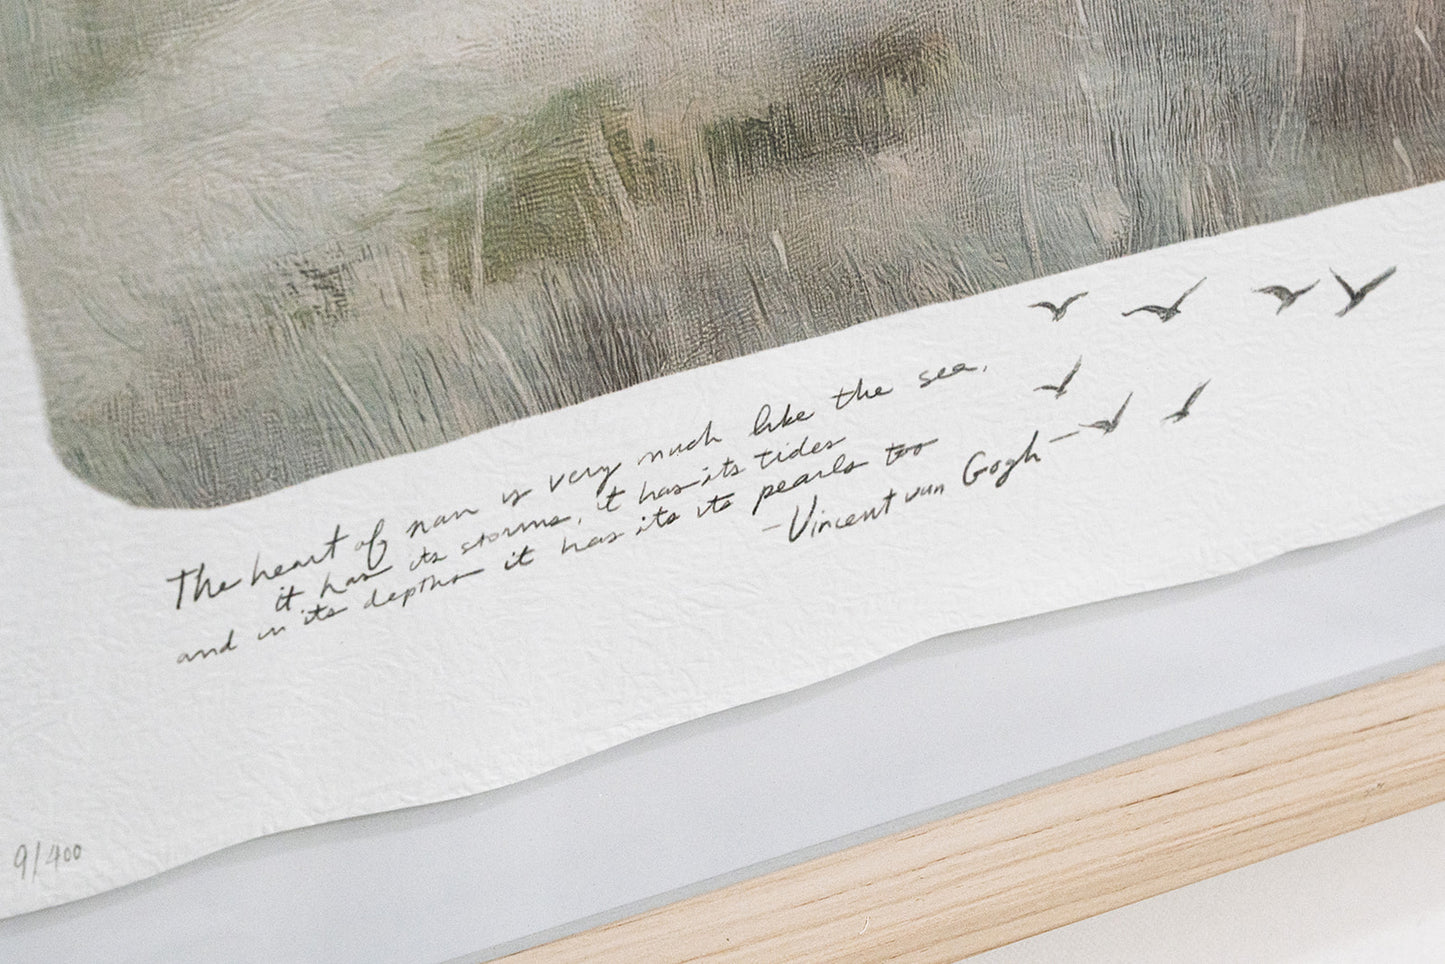 The heart of man is very much like the sea,
it has its storms, it has its tides
and in its depths it has its its pearls too
—Vincent van Gogh—
9/400